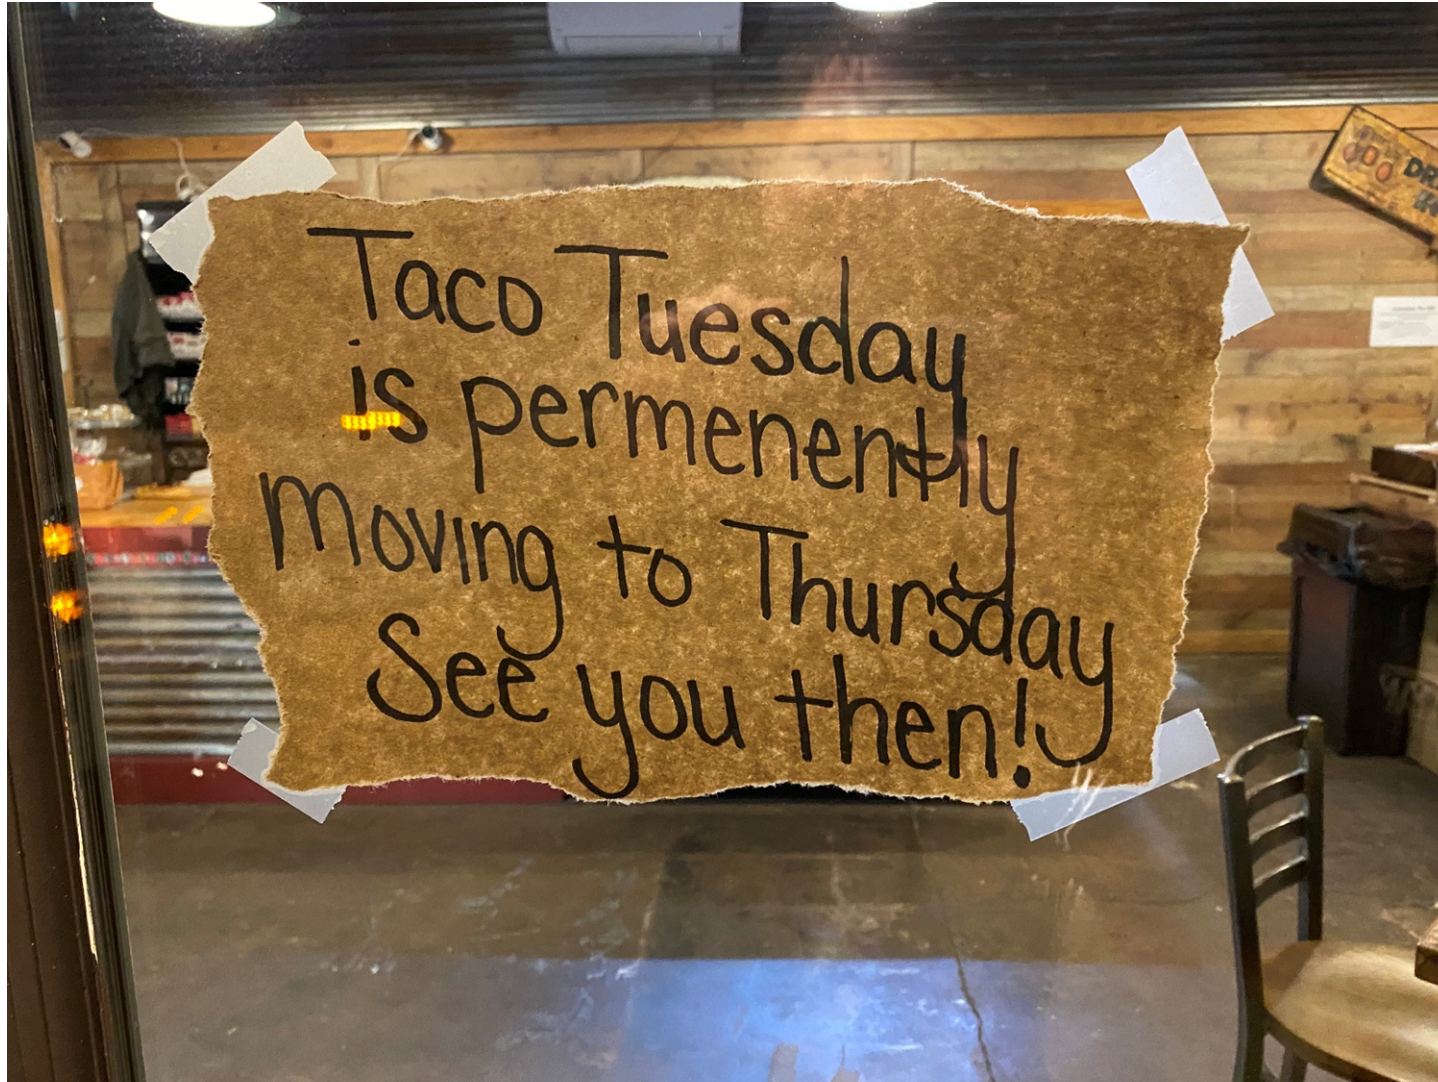 Taco Tuesday
is permenently
moving to Thursday
See you then!